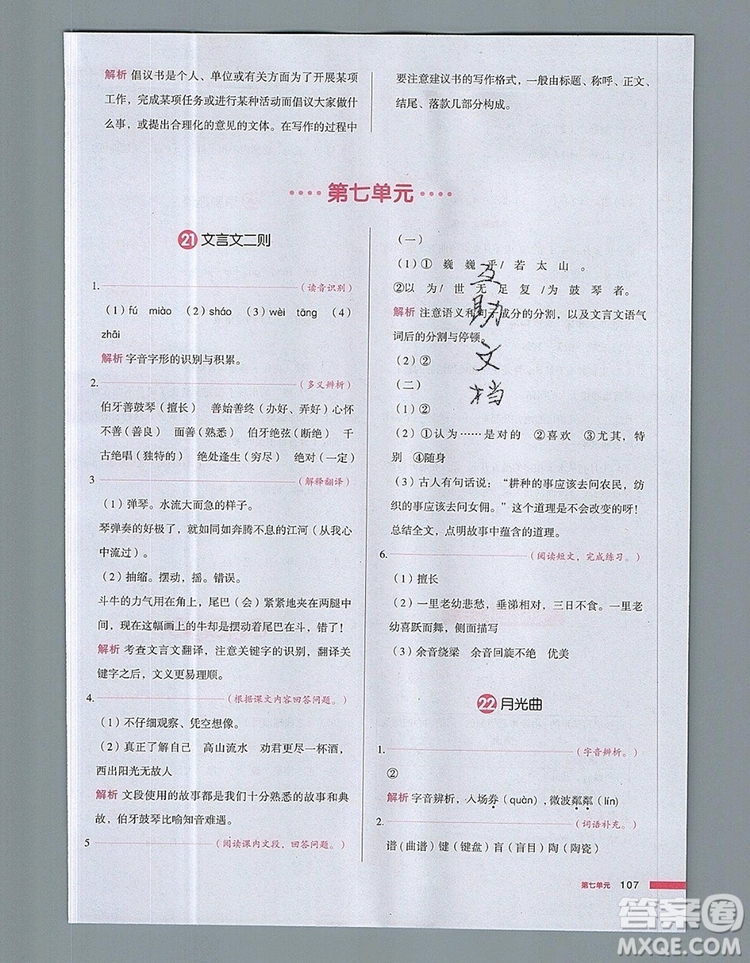 解析 倡议书是个人、单位或有关方面为了开展某项
工作，完成某项任务或进行某种活动而倡议大家做什
么事，或提出合理化的意见的文体。在写作的过程中
要注意建议书的写作格式，一般由标题、称呼、正文、
结尾、落款几部分构成。
第七单元
21 文言文二则
1. (读音识别)
(1) fú miào (2) sháo (3) wèi tāng (4)
zhāi
解析 字音字形的识别与积累。
2. (多义辨析)
伯牙善鼓琴(擅长) 善始善终(办好、弄好)心怀
不善(善良) 面善(熟悉) 伯牙绝弦(断绝) 千
古绝唱(独特的) 绝处逢生(穷尽) 绝对(一定)
3 (解释翻译)
(1)弹琴。水流大而急的样子。
琴弹奏的真好，就如同如奔腾不息的江河(从我心
中流过)。
(2)抽缩。摆动，摇。错误。
斗牛的力气用在角上，尾巴(会)紧紧地夹在两腿
间，现在这幅画上的牛却是摆动着尾巴在斗，错了!
解析 考查文言文翻译，注意关键字的识别，翻译关
键字之后，文义更易理顺。
4. (根据课文内容回答问题。)
(1)不仔细观察、凭空想像。
(2)真正了解自己 高山流水 劝君更尽一杯酒，
西出阳光无故人
解析 文段使用的故事都是我们十分熟悉的故事和典
故，伯牙钟子期喻知音难遇。
5 (阅读课内文段，回答问题。)
(一)
(1)① 巍 巍 乎/若 太 山。
②以 为/世 无 足 复/为 鼓 琴 者。
解析 注意语义和句子成分的分割，以及文言文语气
词后的分割与停顿。
(2)②
(二)
(1)②
(2)①认为……是对的 ②喜欢 ③尤其，特别
④随身
(3)古人有句话说：“耕种的事应该去问农民，纺
织的事应该去问女佣。”这个道理是不会改变的呀!
总结全文，点明故事中蕴含的道理。
6. (阅读短文，完成练习。)
(1)擅长
(2)一里老幼悲愁，垂涕相对，三日不食。一里老
幼喜跃而舞，侧面描写
(3)余音绕梁 余音回旋不绝 优美
22 月光曲
1. (字音辨析。)
②
解析 字音辨析，入场券(quàn)，微波粼粼(lín)
2. (词语补充。)
谱(曲谱)键(键盘)盲(盲目)陶(陶瓷)
互助文档
第七单元 107
答案圈
MXQE.COM